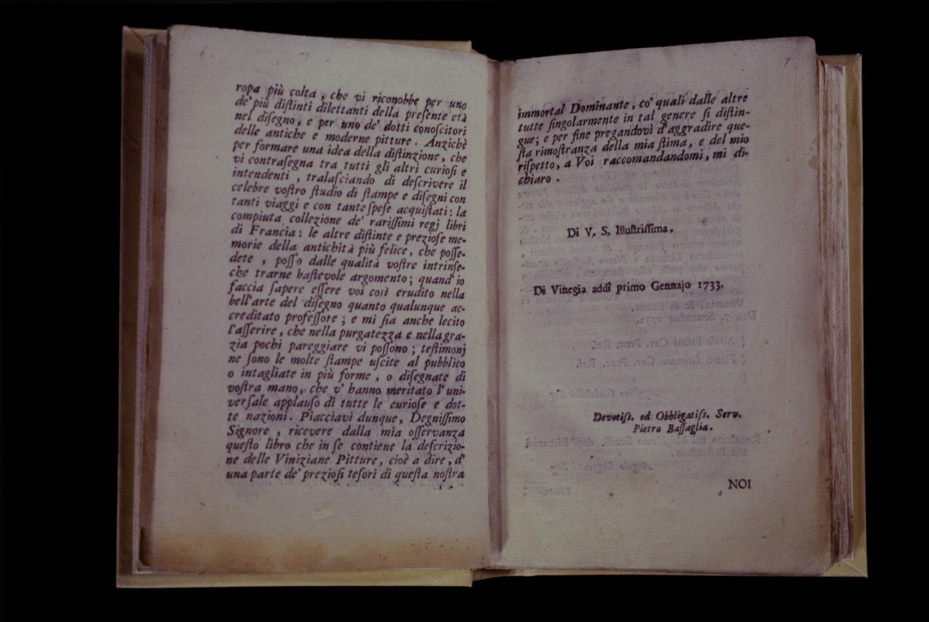 ropa più colta , che vi riconobbe per uno
de' più distinti dilettanti della presente età
nel disegno, e per uno de' dotti conoscitori
delle antiche e moderne pitture. Anzichè
per formare una idea della distinzione, che
vi contrasegna tra tutti gli altri curiosi e
intendenti , tralasciando di descrivere il
celebre vostro studio di stampe e disegni con
tanti viaggi e con tante spese acquistati: la
compiuta collezione de' rarissimi regj libri
di Francia: le altre distinte e preziose me-
morie della antichità più felice, che posse-
dete , posso dalle qualità vostre intrinse-
che trarne bastevole argomento; quand' io
faccia sapere essere voi così erudito nella
bell'arte del disegno quanto qualunque ac-
creditato professore ; e mi sia anche lecito
l'asserire, che nella purgatezza e nella gra-
zia pochi pareggiare vi possono ; testimonj
ne sono le molte stampe uscite al pubblico
o intagliate in più forme , o disegnate di
vostra mano, che v' hanno meritato l' uni-
versale applauso di tutte le curiose e dot-
te nazioni. Piacciavi dunque, Degnissimo
Signore , ricevere dalla mia osservanza
questo libro che in se contiene la descrizio-
ne delle Viniziane Pitture, cioè a dire, d'
una parte de' preziosi tesori di questa nostra
7
immortal Dominante, co' quali dalle altre
tutte singolarmente in tal genere si distin-
gue; e per fine pregandovi d'aggradire que-
sta rimostranza della mia stima, e del mio
rispetto, a Voi raccomandandomi, mi di-
chiaro .
Di V. S. Illustrissima.
Di Vinegia addì primo Gennajo 1733.
Devotiss. ed Obbligatiss. Serv.
Pietro Bassaglia.
NOI